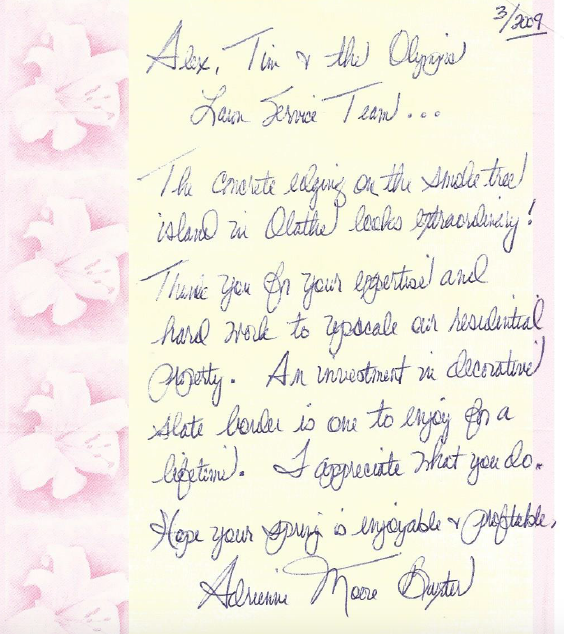 3/2009
Alex, Tim & the Olympic
Lawn Service Team...
The concrete edging on the smoke tree
island in Olathe looks extraordinary!
Thank you for your expertise and
hard work to upscale our residential
property. An investment in decorative
slate border is one to enjoy for a
lifetime. I appreciate what you do.
Hope your spring is enjoyable & profitable,
Adrienne Moore Baxter